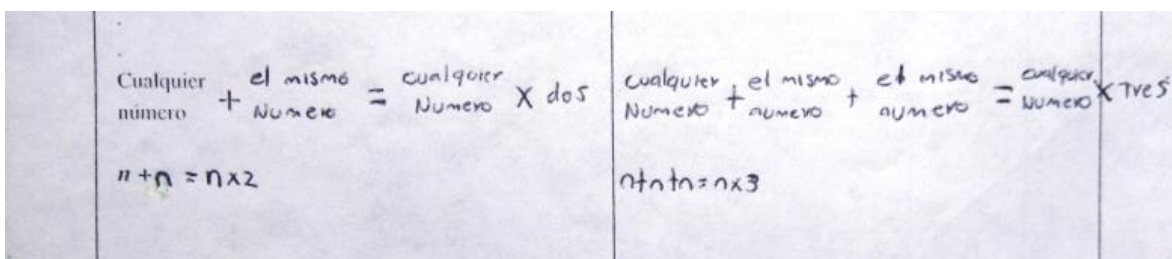 Cualquier número + el mismo Numero = cualquier Numero X dos
n + n = n x 2
cualquier Numero + el mismo numero + el mismo numero = cualquier Numero X Tres
n+n+n = n x 3